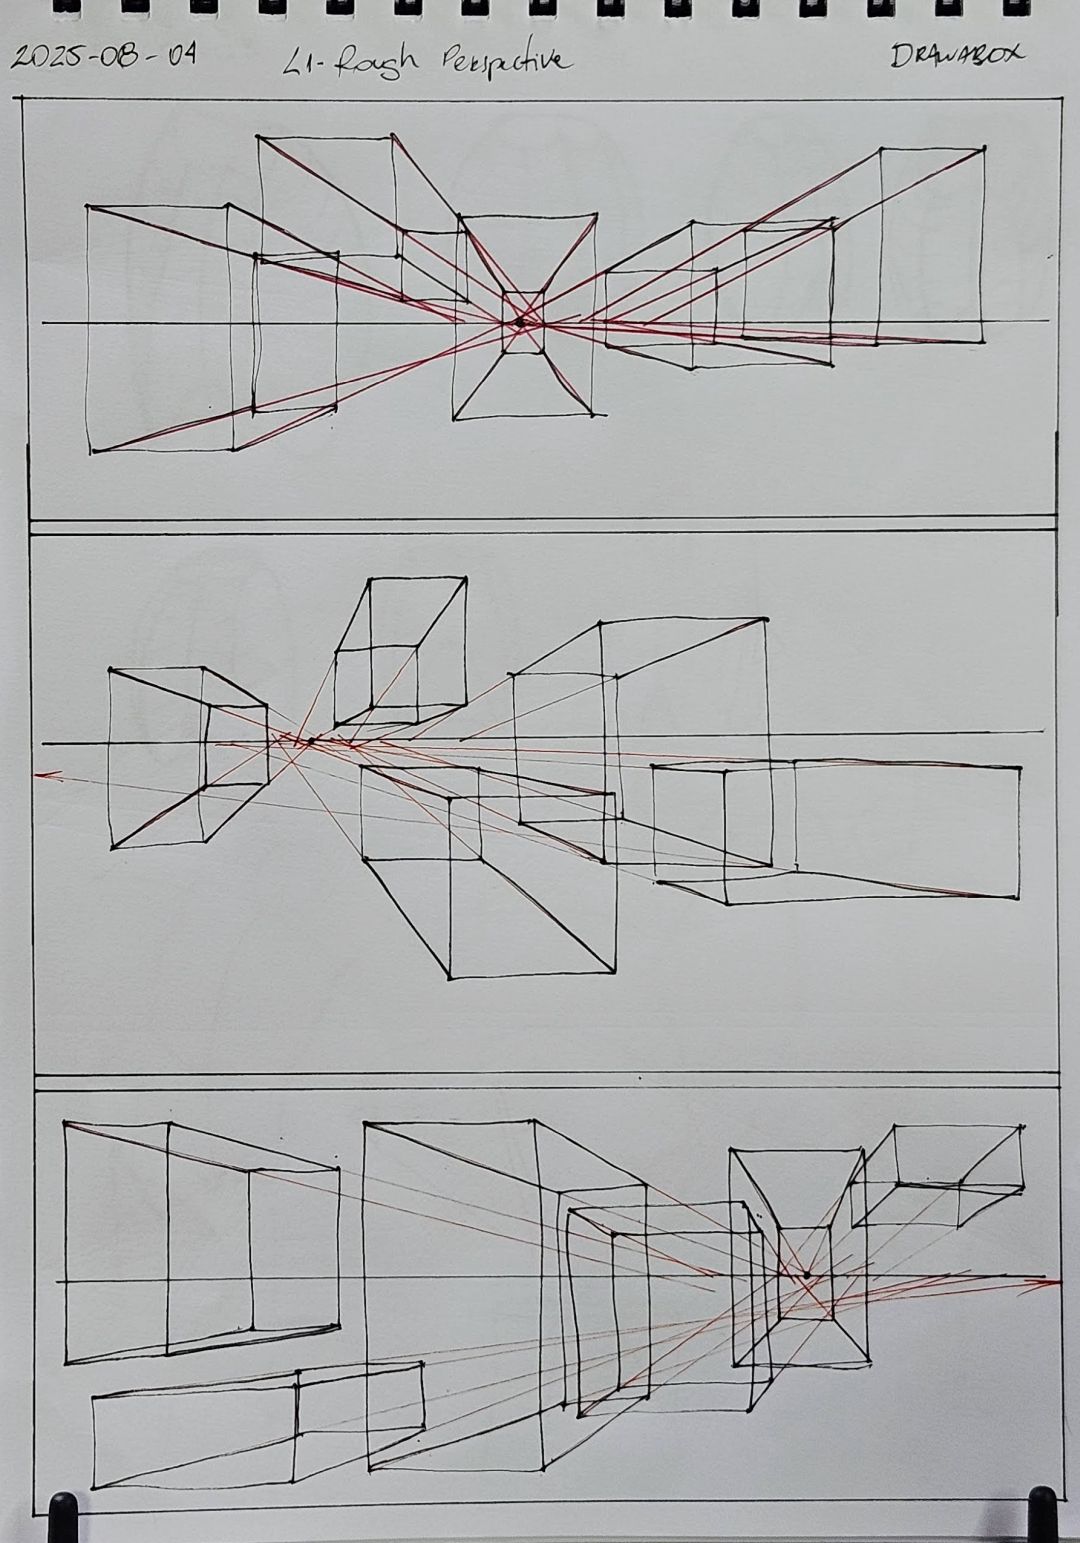 2025-08-04 L1-Rough Perspective DRAWABOX